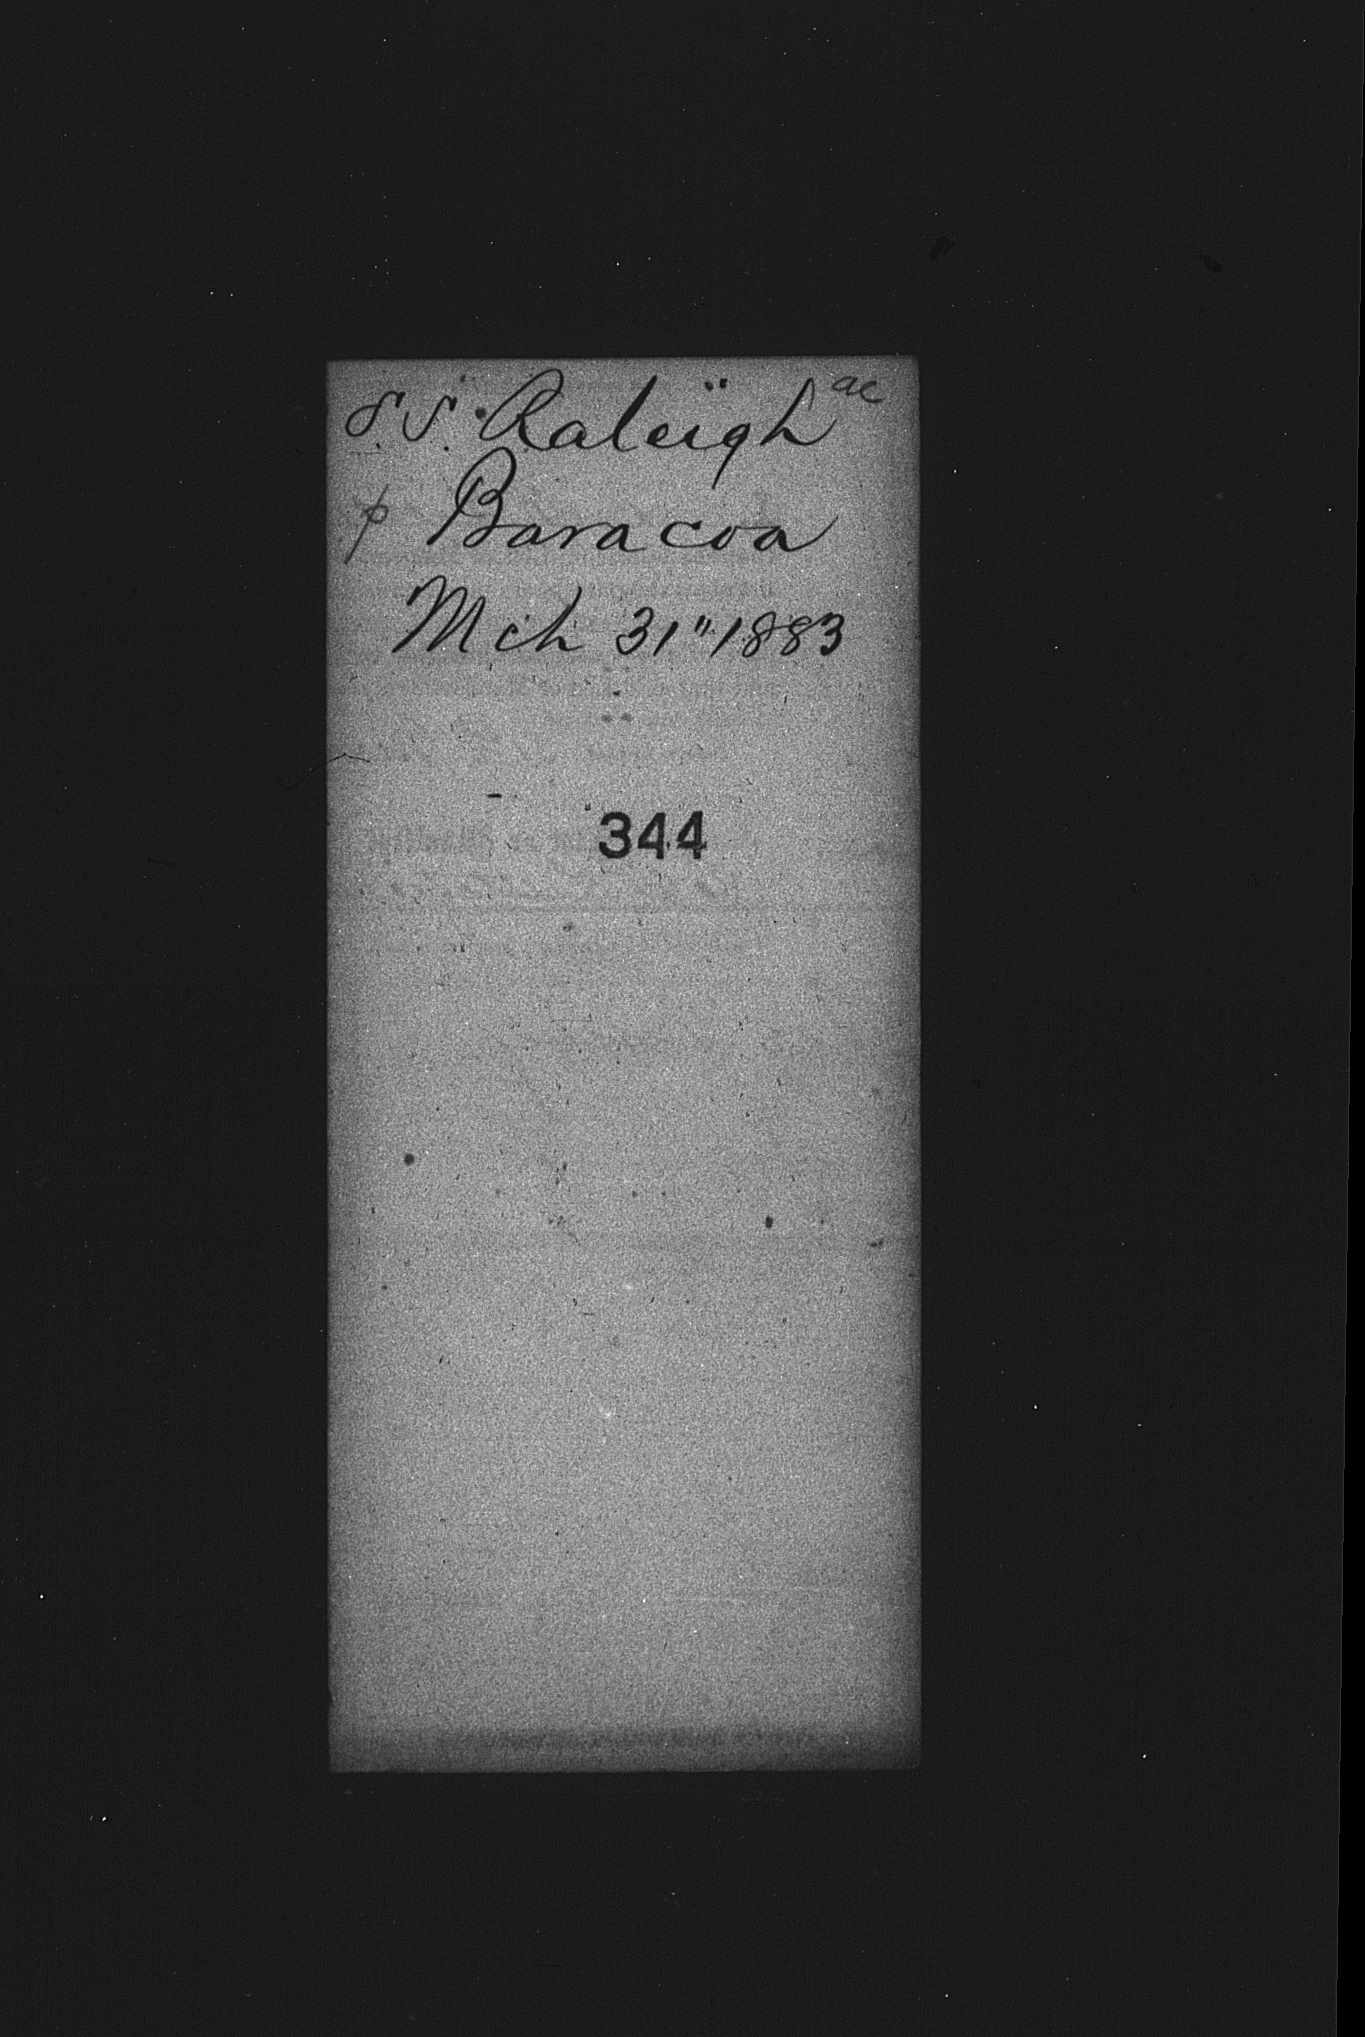 S.S. Raleigh ac
p Baracoa
Mch 31" 1883
344